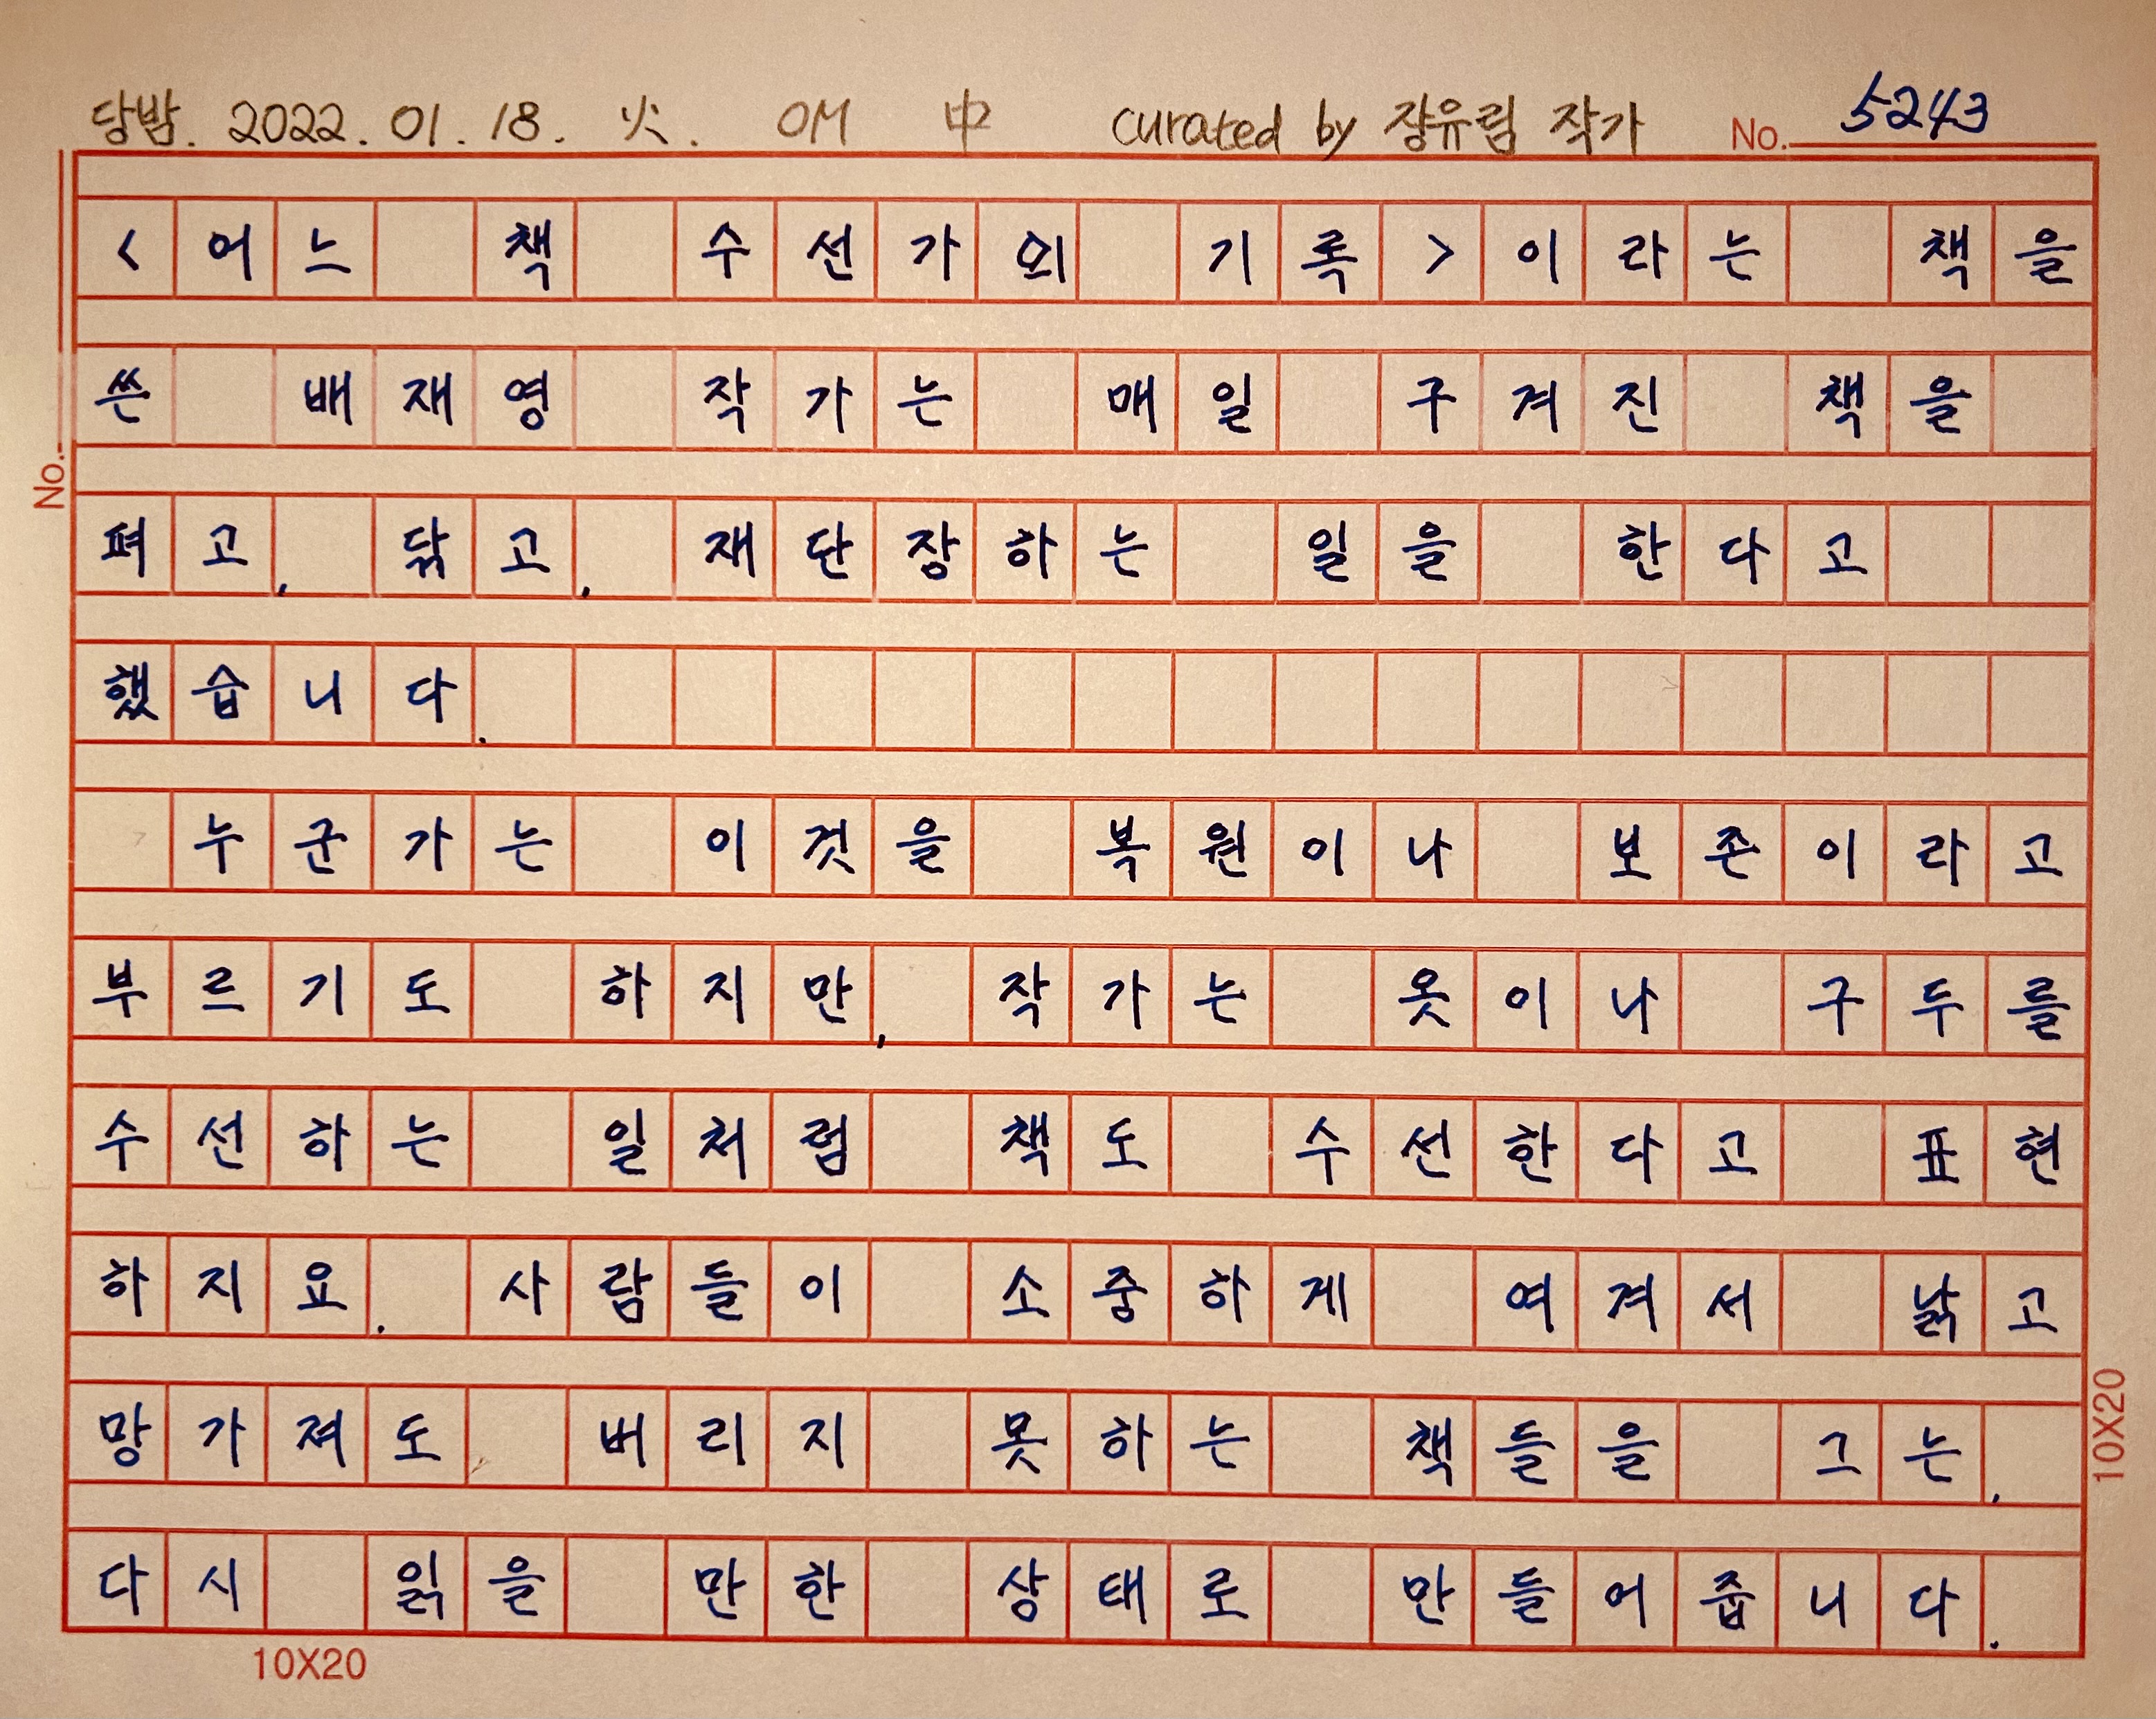 당밤. 2022. 01. 18. 火. OM 中 curated by 장유림 작가 No. 5243
<어느 책 수선가의 기록>이라는 책을
쓴 배재영 작가는 매일 구겨진 책을
펴고, 닦고, 재단장하는 일을 한다고
했습니다.
누군가는 이것을 복원이나 보존이라고
부르기도 하지만, 작가는 옷이나 구두를
수선하는 일처럼 책도 수선한다고 표현
하지요. 사람들이 소중하게 여겨서 낡고
망가져도 버리지 못하는 책들을 그는,
다시 읽을 만한 상태로 만들어줍니다.
No.
10X20
10X20